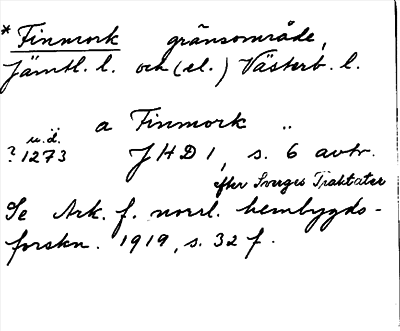 * Finmork gränsområde,
Jämtl. l. och (el.) Västerb. l.
a Finmork "
u.d.
? 1273 JHD 1, s. 6 avtr.
efter Sverges Traktater
Se Ark. f. norrl. hembygds-
forskn. 1919, s. 32 f.